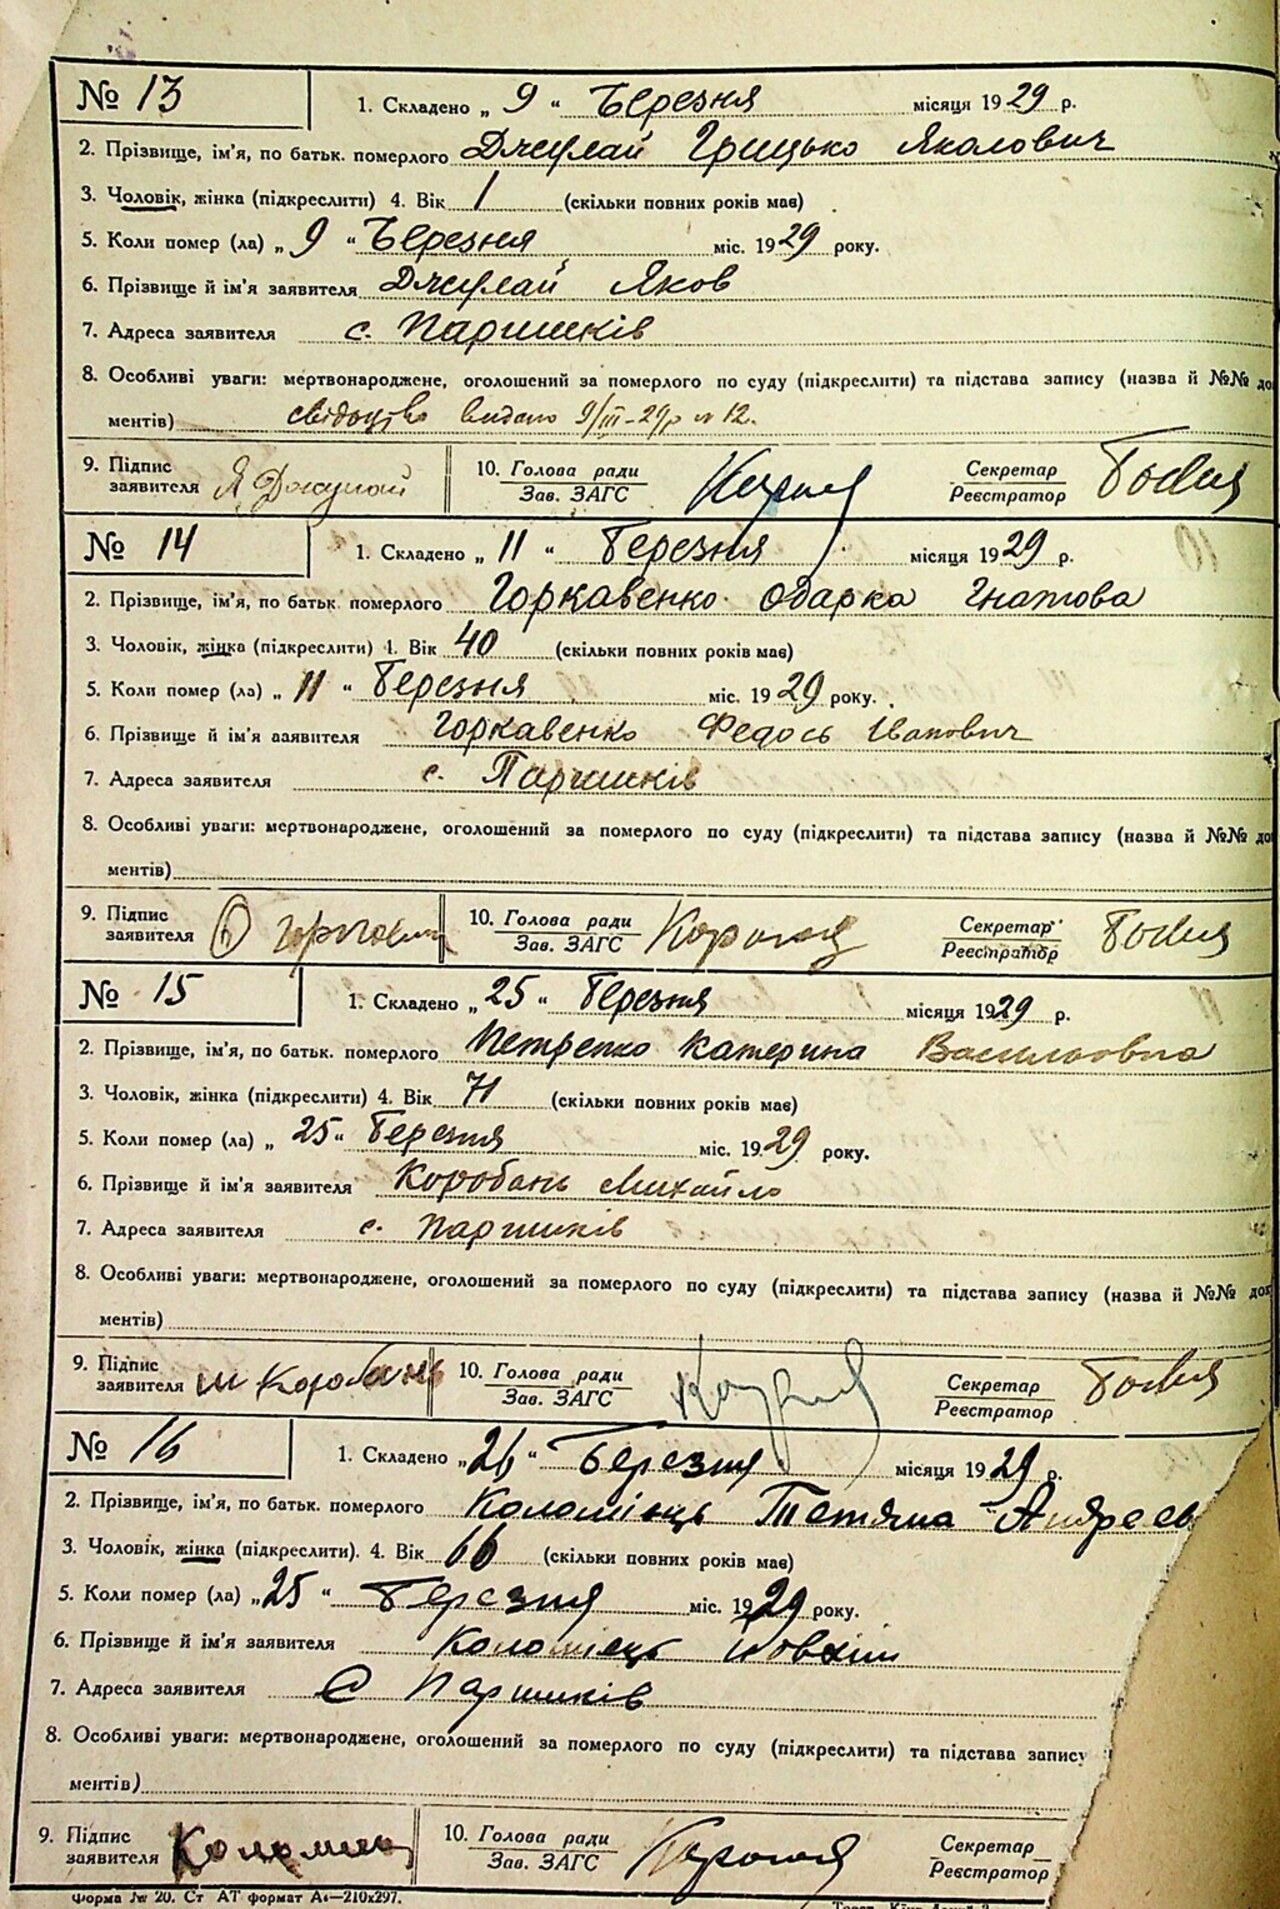 № 13 1. Складено „ 9 “ Березня місяця 1929 р.
2. Прізвище, ім'я, по батьк. померлого Джулай Грицько Яколович
3. Чоловік, жінка (підкреслити) 4. Вік 1 (скільки повних років має)
5. Коли помер (ла) „ 9 “ Березня міс. 1929 року.
6. Прізвище й ім'я заявителя Джулай Яков
7. Адреса заявителя с. Паришків
8. Особливі уваги: мертвонароджене, оголошений за померлого по суду (підкреслити) та підстава запису (назва й №№ до
ментів) свідоцтво видано 9/III-29р № 12.
9. Підпис заявителя Я Джулай 10. Голова ради Зав. ЗАГС Секретар Реєстратор
№ 14 1. Складено „ 11 “ Березня місяця 1929 р.
2. Прізвище, ім'я, по батьк. померлого Горкавенко Одарка Гнатова
3. Чоловік, жінка (підкреслити) 4. Вік 40 (скільки повних років має)
5. Коли помер (ла) „ 11 “ Березня міс. 1929 року.
6. Прізвище й ім'я заявителя Горкавенко Федось Іванович
7. Адреса заявителя с. Паришків
8. Особливі уваги: мертвонароджене, оголошений за померлого по суду (підкреслити) та підстава запису (назва й №№ до
ментів)
9. Підпис заявителя 10. Голова ради Зав. ЗАГС Секретар Реєстратор
№ 15 1. Складено „ 25 “ Березня місяця 1929 р.
2. Прізвище, ім'я, по батьк. померлого Петренко Катерина Васильовна
3. Чоловік, жінка (підкреслити) 4. Вік 71 (скільки повних років має)
5. Коли помер (ла) „ 25 “ Березня міс. 1929 року.
6. Прізвище й ім'я заявителя Коробань Михайло
7. Адреса заявителя с. Паришків
8. Особливі уваги: мертвонароджене, оголошений за померлого по суду (підкреслити) та підстава запису (назва й №№ док
ментів)
9. Підпис заявителя м Коробань 10. Голова ради Зав. ЗАГС Секретар Реєстратор
№ 16 1. Складено „ 26 “ Березня місяця 1929 р.
2. Прізвище, ім'я, по батьк. померлого Коломієць Тетяна Андреєв
3. Чоловік, жінка (підкреслити). 4. Вік 66 (скільки повних років має)
5. Коли помер (ла) „ 25 “ Березня міс. 1929 року.
6. Прізвище й ім'я заявителя Коломієць Йовхим
7. Адреса заявителя с Паришків
8. Особливі уваги: мертвонароджене, оголошений за померлого по суду (підкреслити) та підстава запису
ментів)
9. Підпис заявителя Коломиец 10. Голова ради Зав. ЗАГС Секретар Реєстратор
Форма № 20. Ст АТ формат А4—210x297.